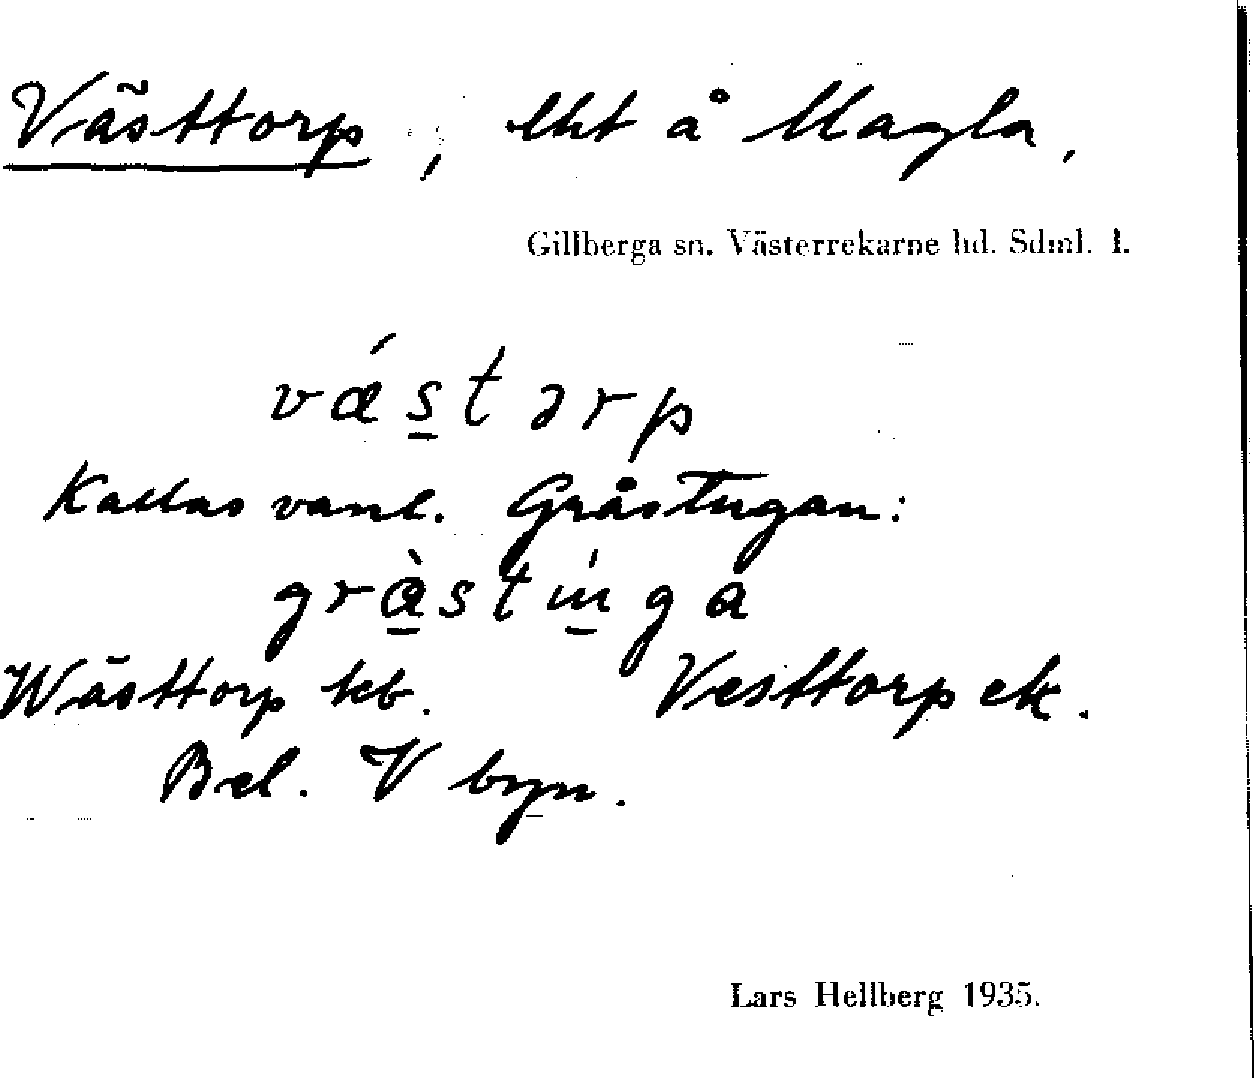 Västtorp, lht å Magla,
Gillberga sn. Västerrekarne hd. Sdml. l.
vǽs̲tərp
Kallas vanl. Gråstugan:
græ̲̀stın̲ga
Wästtorp teb. Vesttorp ek.
Bel. V byn.
Lars Hellberg 1935.